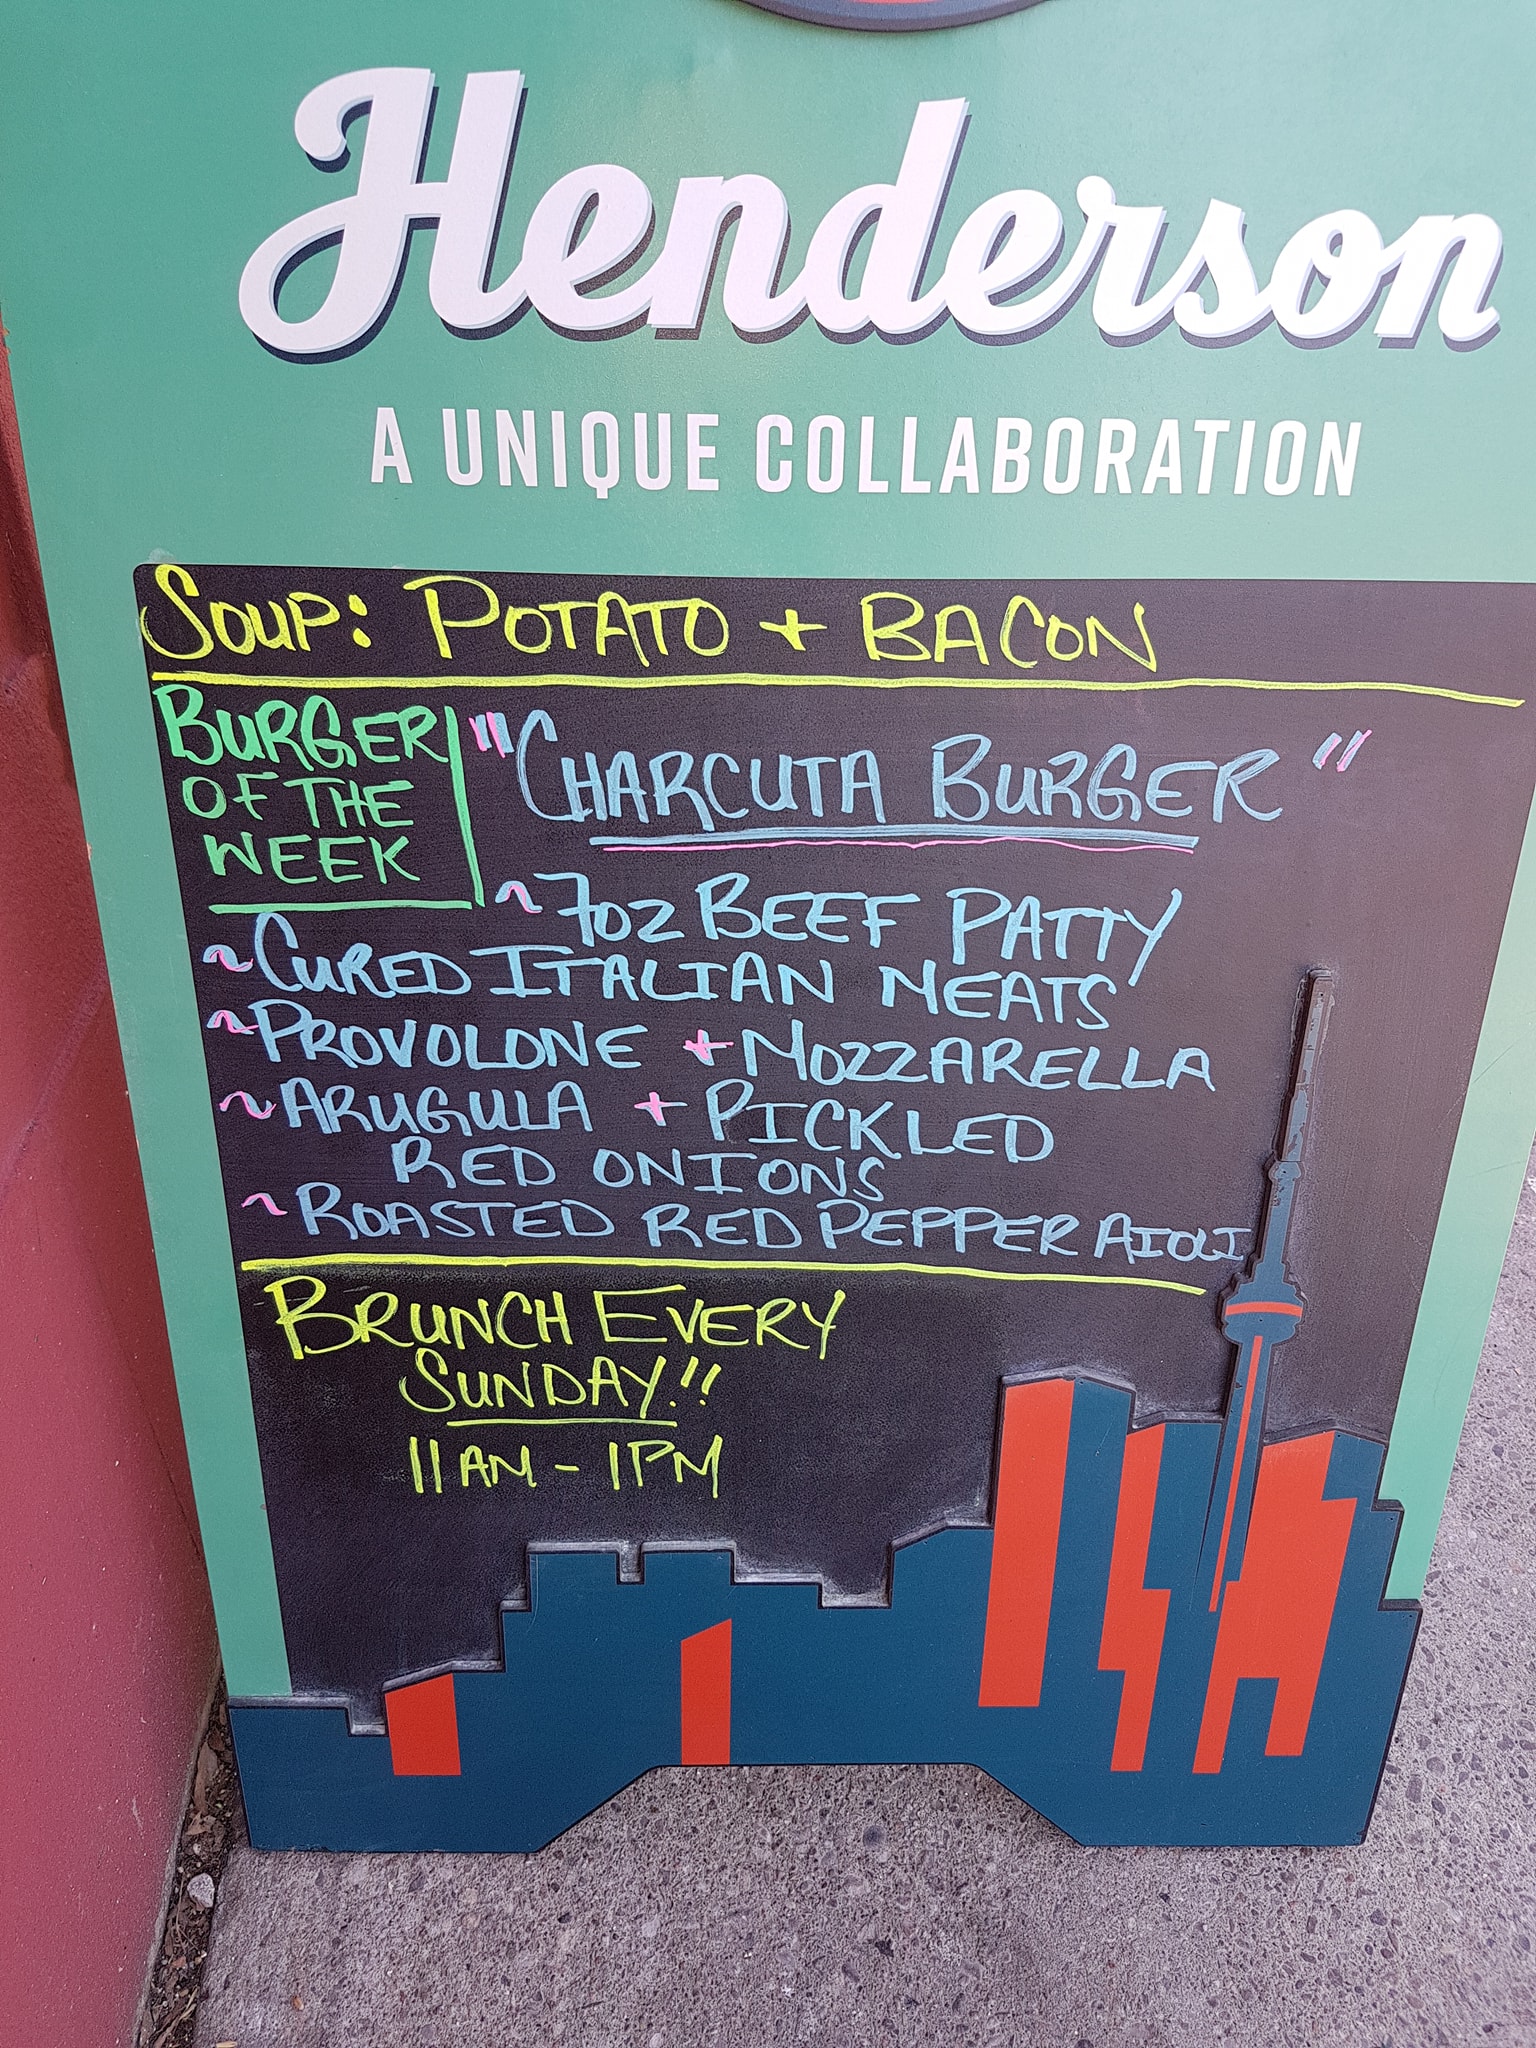 Henderson
A UNIQUE COLLABORATION
SOUP: POTATO + BACON
BURGER
OF THE
WEEK
"CHARCUTA BURGER"
~ 7OZ BEEF PATTY
~ CURED ITALIAN MEATS
~ PROVOLONE + MOZZARELLA
~ ARUGULA + PICKLED
RED ONIONS
~ ROASTED RED PEPPER AIOLI
BRUNCH EVERY
SUNDAY!!
11AM - 1PM